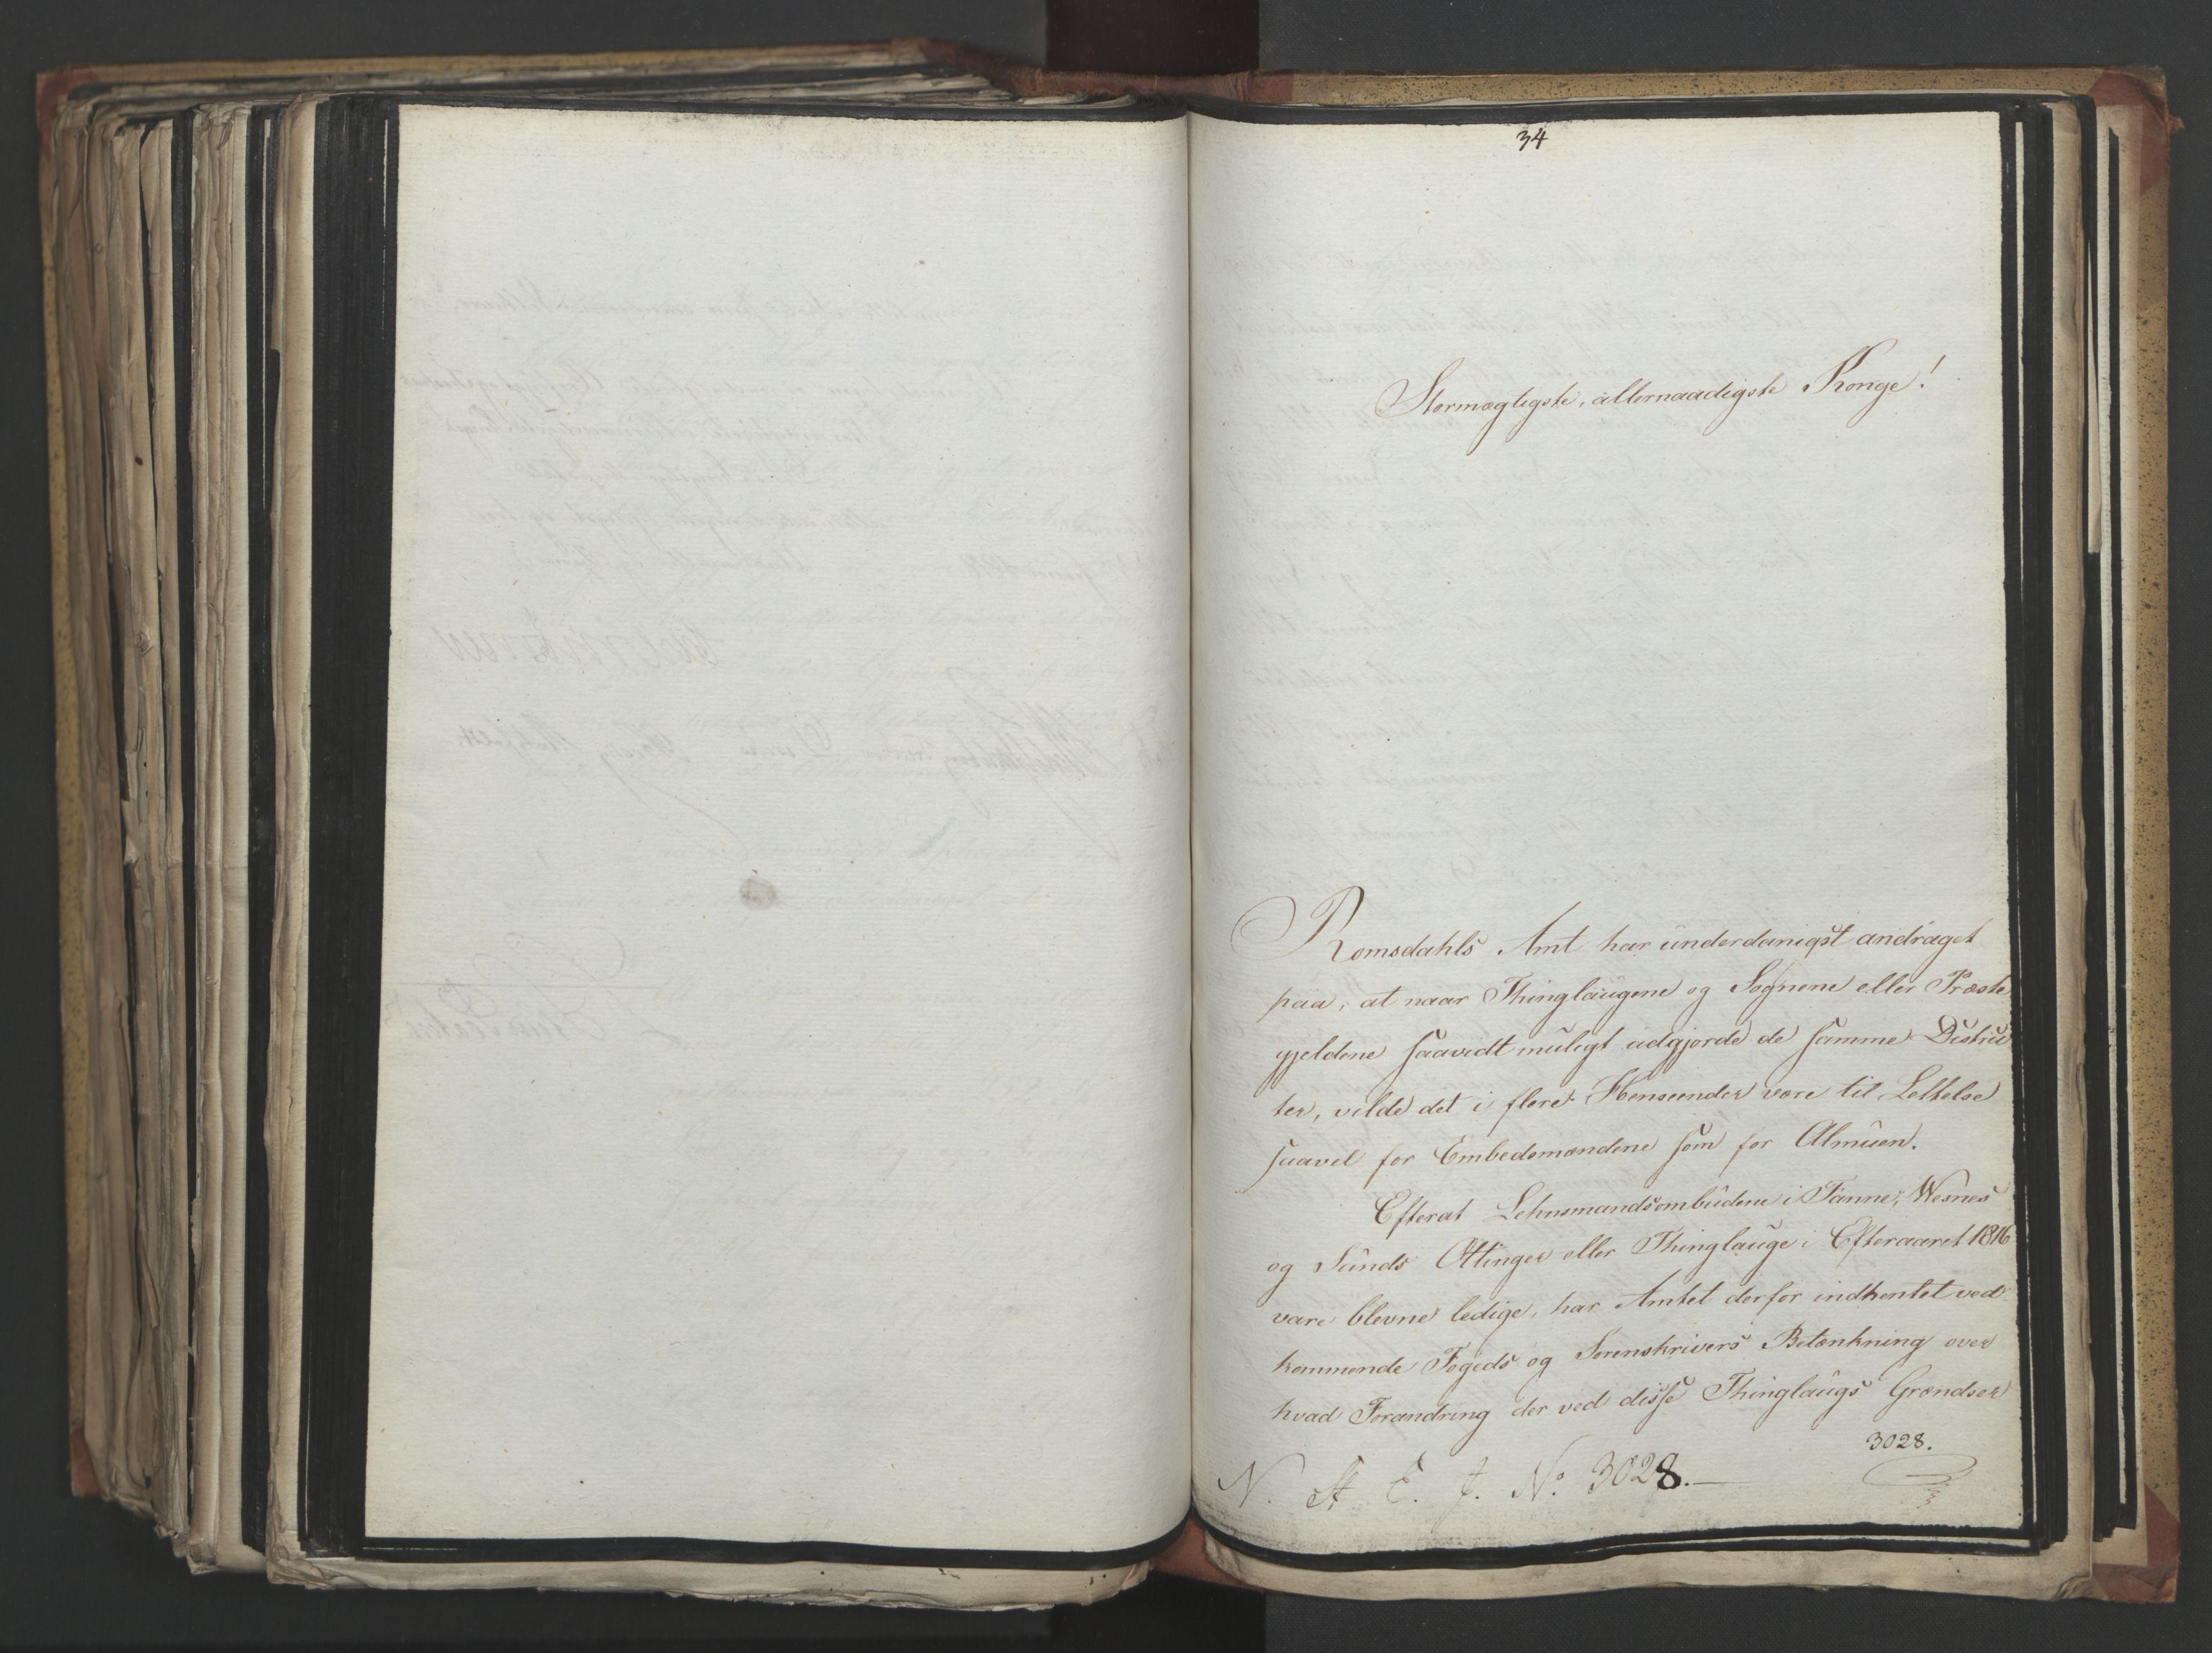 34
Stormægtigste, allernaadigste Konge!
Romsdahls Amt har underdanigst andraget
paa, at naar Thinglaugene og Sognene eller Præste
gjeldene saavidt muligt udgjorde de samme Distric
ter, vilde det i flere Henseender være til Lettelse
saavel for Embedsmændene som for Almuen.
Efterat Lehnsmandsombudene i Tænne, Wesnes
og Sunds Ottinger eller Thinglauge i Efteraaret 1816
vare blevne ledige, har Amtet derfor indhentet ved
kommende Fogeds og Sorenskrivers Betænkning over
hvad Forandring der ved disse Thinglaugs Grændser
3028.
N. St E. J. No. 3028.